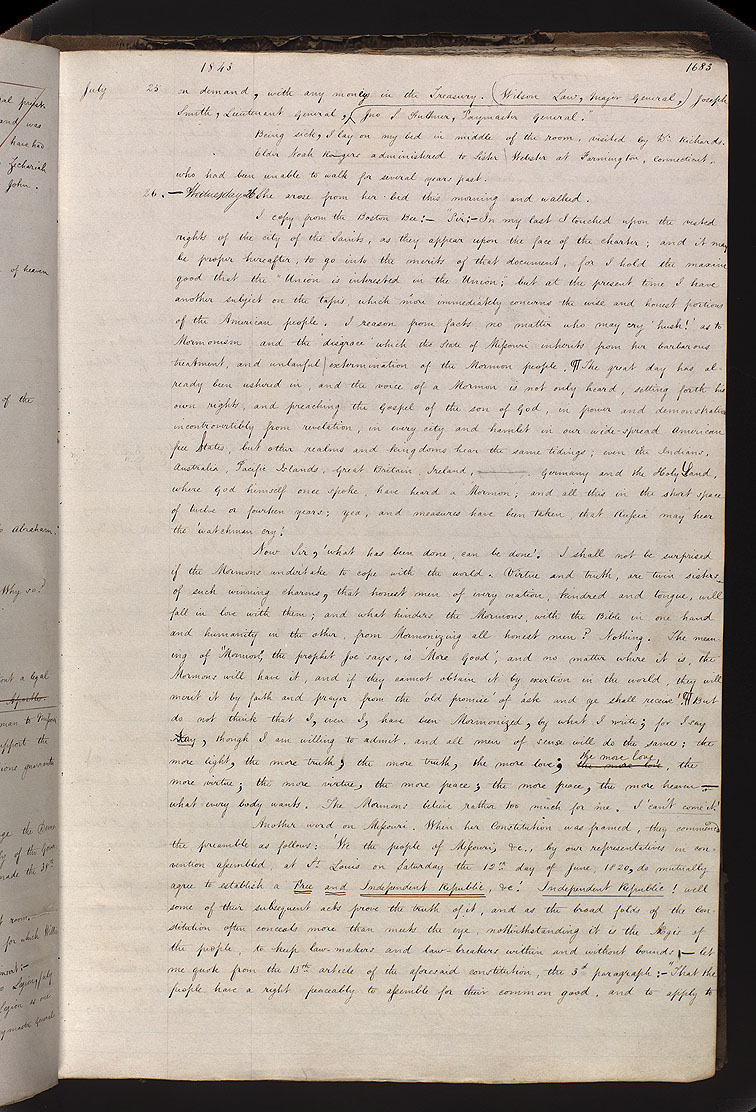 1843 1683
July 25 on demand, with any money in the Treasury. (Wilson Law, Major General,) Joseph
Smith, Lieutenant General, (Jno S Fullmer, Paymaster General."
Being sick, I lay on my bed in middle of the room, visited by Wm Richards.
Elder Noah Rogers administered to Sister Webster at Farmington, Connecticut,
who had been unable to walk for several years past.
26. — Wednesday 26 She arose from her bed this morning and walked.
I copy from the Boston Bee:— Sir:— In my last I touched upon the vested
rights of the city of the Saints, as they appear upon the face of the charter; and it may
be proper hereafter, to go into the merits of that document, for I hold the maxim
good that the "Union is interested in the Union; but at the present time I have
another subject on the tapis, which more immediately concerns the wise and honest portions
of the American people. I reason from facts no matter who may cry 'hush!' as to
Mormonism and the 'disgrace' which the State of Missouri inherits from her barbarous
treatment, and unlawful extermination of the Mormon people. ¶ The great day has al-
ready been ushered in, and the voice of a Mormon is not only heard, setting forth his
own rights, and preaching the Gospel of the son of God, in power and demonstration
incontrovertibly from revelation, in every city and hamlet in our wide-spread American
free States, but other realms and kingdoms hear the same tidings; even the Indians,
Australia, Pacific Islands, Great Britain, Ireland, ——— Germany and the Holy Land,
where God himself once spoke, have heard a Mormon; and all this in the short space
of twelve or fourteen years; yea, and measures have been taken, that Russia may hear
the 'watchman cry'.
Now Sir, 'what has been done, can be done'. I shall not be surprised
if the Mormons undertake to cope with the world. Virtue and truth, are twin sisters
of such winning charms, that honest men of every nation, kindred and tongue, will
fall in love with them; and what hinders the Mormons, with the Bible in one hand
and humanity in the other, from Mormonizing all honest men? Nothing. The mean-
ing of 'Mormon', the prophet Joe says, is 'More Good'; and no matter where it is, the
Mormons will have it, and if they cannot obtain it by exertion in the world, they will
merit it by faith and prayer from the 'old promise' of 'ask and ye shall receive'! ¶ But
do not think that I, even I, have been Mormonized, by what I write; for I say
Nay, though I am willing to admit, and all men of sense will do the same; the
more light, the more truth; the more truth, the more love; the more love, the
more virtue; the more virtue, the more peace; the more peace, the more heaven —
what every body wants. The Mormons believe rather too much for me. I 'can't come it'!
Another word on Missouri. When her Constitution was framed, they commence
the preamble as follows: 'We the people of Missouri, &c., by our representatives in con-
vention assembled, at St Louis on Saturday the 12th day of June, 1820, do mutually
agree to establish a Free and Independent Republic, &c.' Independent Republic! well
some of their subsequent acts prove the truth of it, and as the broad folds of the Con-
stitution often conceals more than meets the eye, nothwithstanding it is the Ægis of
the people, to keep law-makers and law-breakers within and without bounds, — let
me quote from the 13th article of the aforesaid constitution, the 3d paragraph:— "That the
people have a right peaceably to assemble for their common good, and to apply to
and was
have had
Zechariah
John.
of heaven
of the
Abraham.
Why so?
a legal
support the
for which